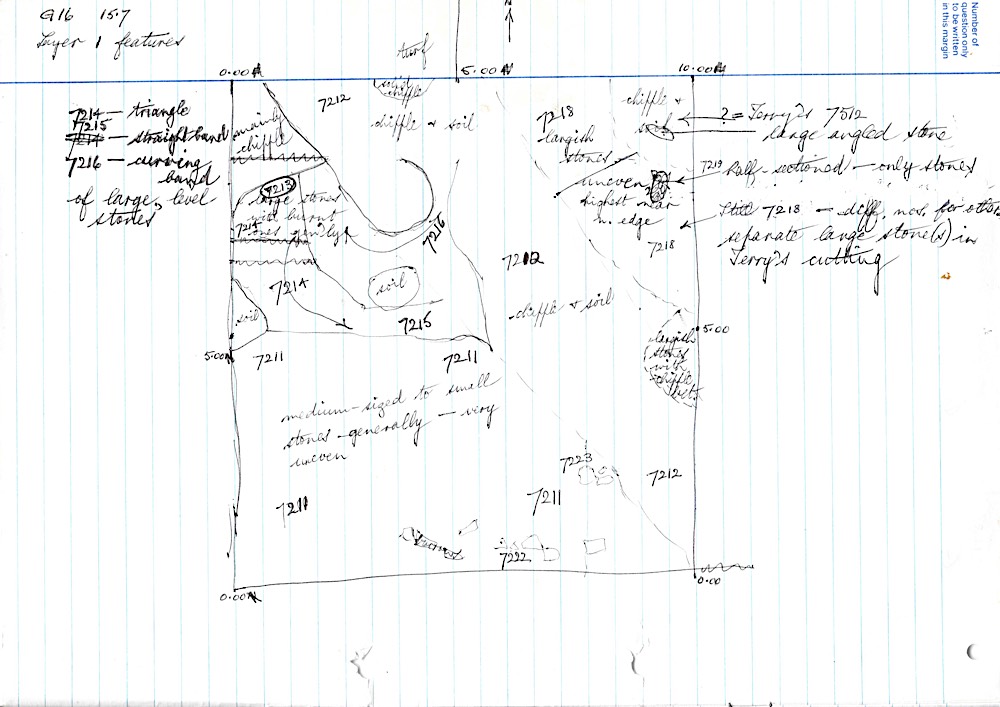 G16 15.7
Layer 1 features
Number of
question only
to be written
in this margin
turf
0.00
5.00
10.00
7214 — triangle
7215
7214 — straight band
7216 — curving
band
of large, level
stones
7212
soil
chiffle
chiffle + soil
mainly
chiffle
7213
large stones
with burnt
7214
7216
soil
7214
soil
7215
5.00
7211
7211
7218
largish
stones
chiffle +
soil
uneven
highest near
n. edge
7218
? = Terry's 7512
large angled stone
7219 Half-sectioned — only stones
Still 7218 — diff. nos. for other
separate large stone(s) in
Terry's cutting
7212
chiffle + soil
5.00
largish
stones
with
chiffle
medium-sized to small
stones generally — very
uneven
7223
7212
7211
7211
7222
0.00
0.00